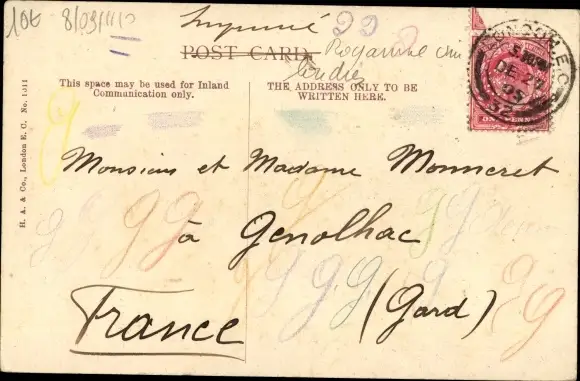 10t 8/03/1112
Imprimé
POST CARD.
Royaume uni
Londres
This space may be used for Inland
Communication only.
THE ADDRESS ONLY TO BE
WRITTEN HERE.
H. A. & Co., London E. C. No. 1511
LONDON E.C.
DE 24
05
Monsieur et Madame Monneret
à Genolhac
France
(Gard)